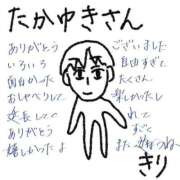 たかゆきさん
ありがとう ございました
いろいろ 自由すぎて
面白かった たくさん
おしゃべりして 楽しかったし
延長して くれて
ありがとう すごく
嬉しかったよ また
きり